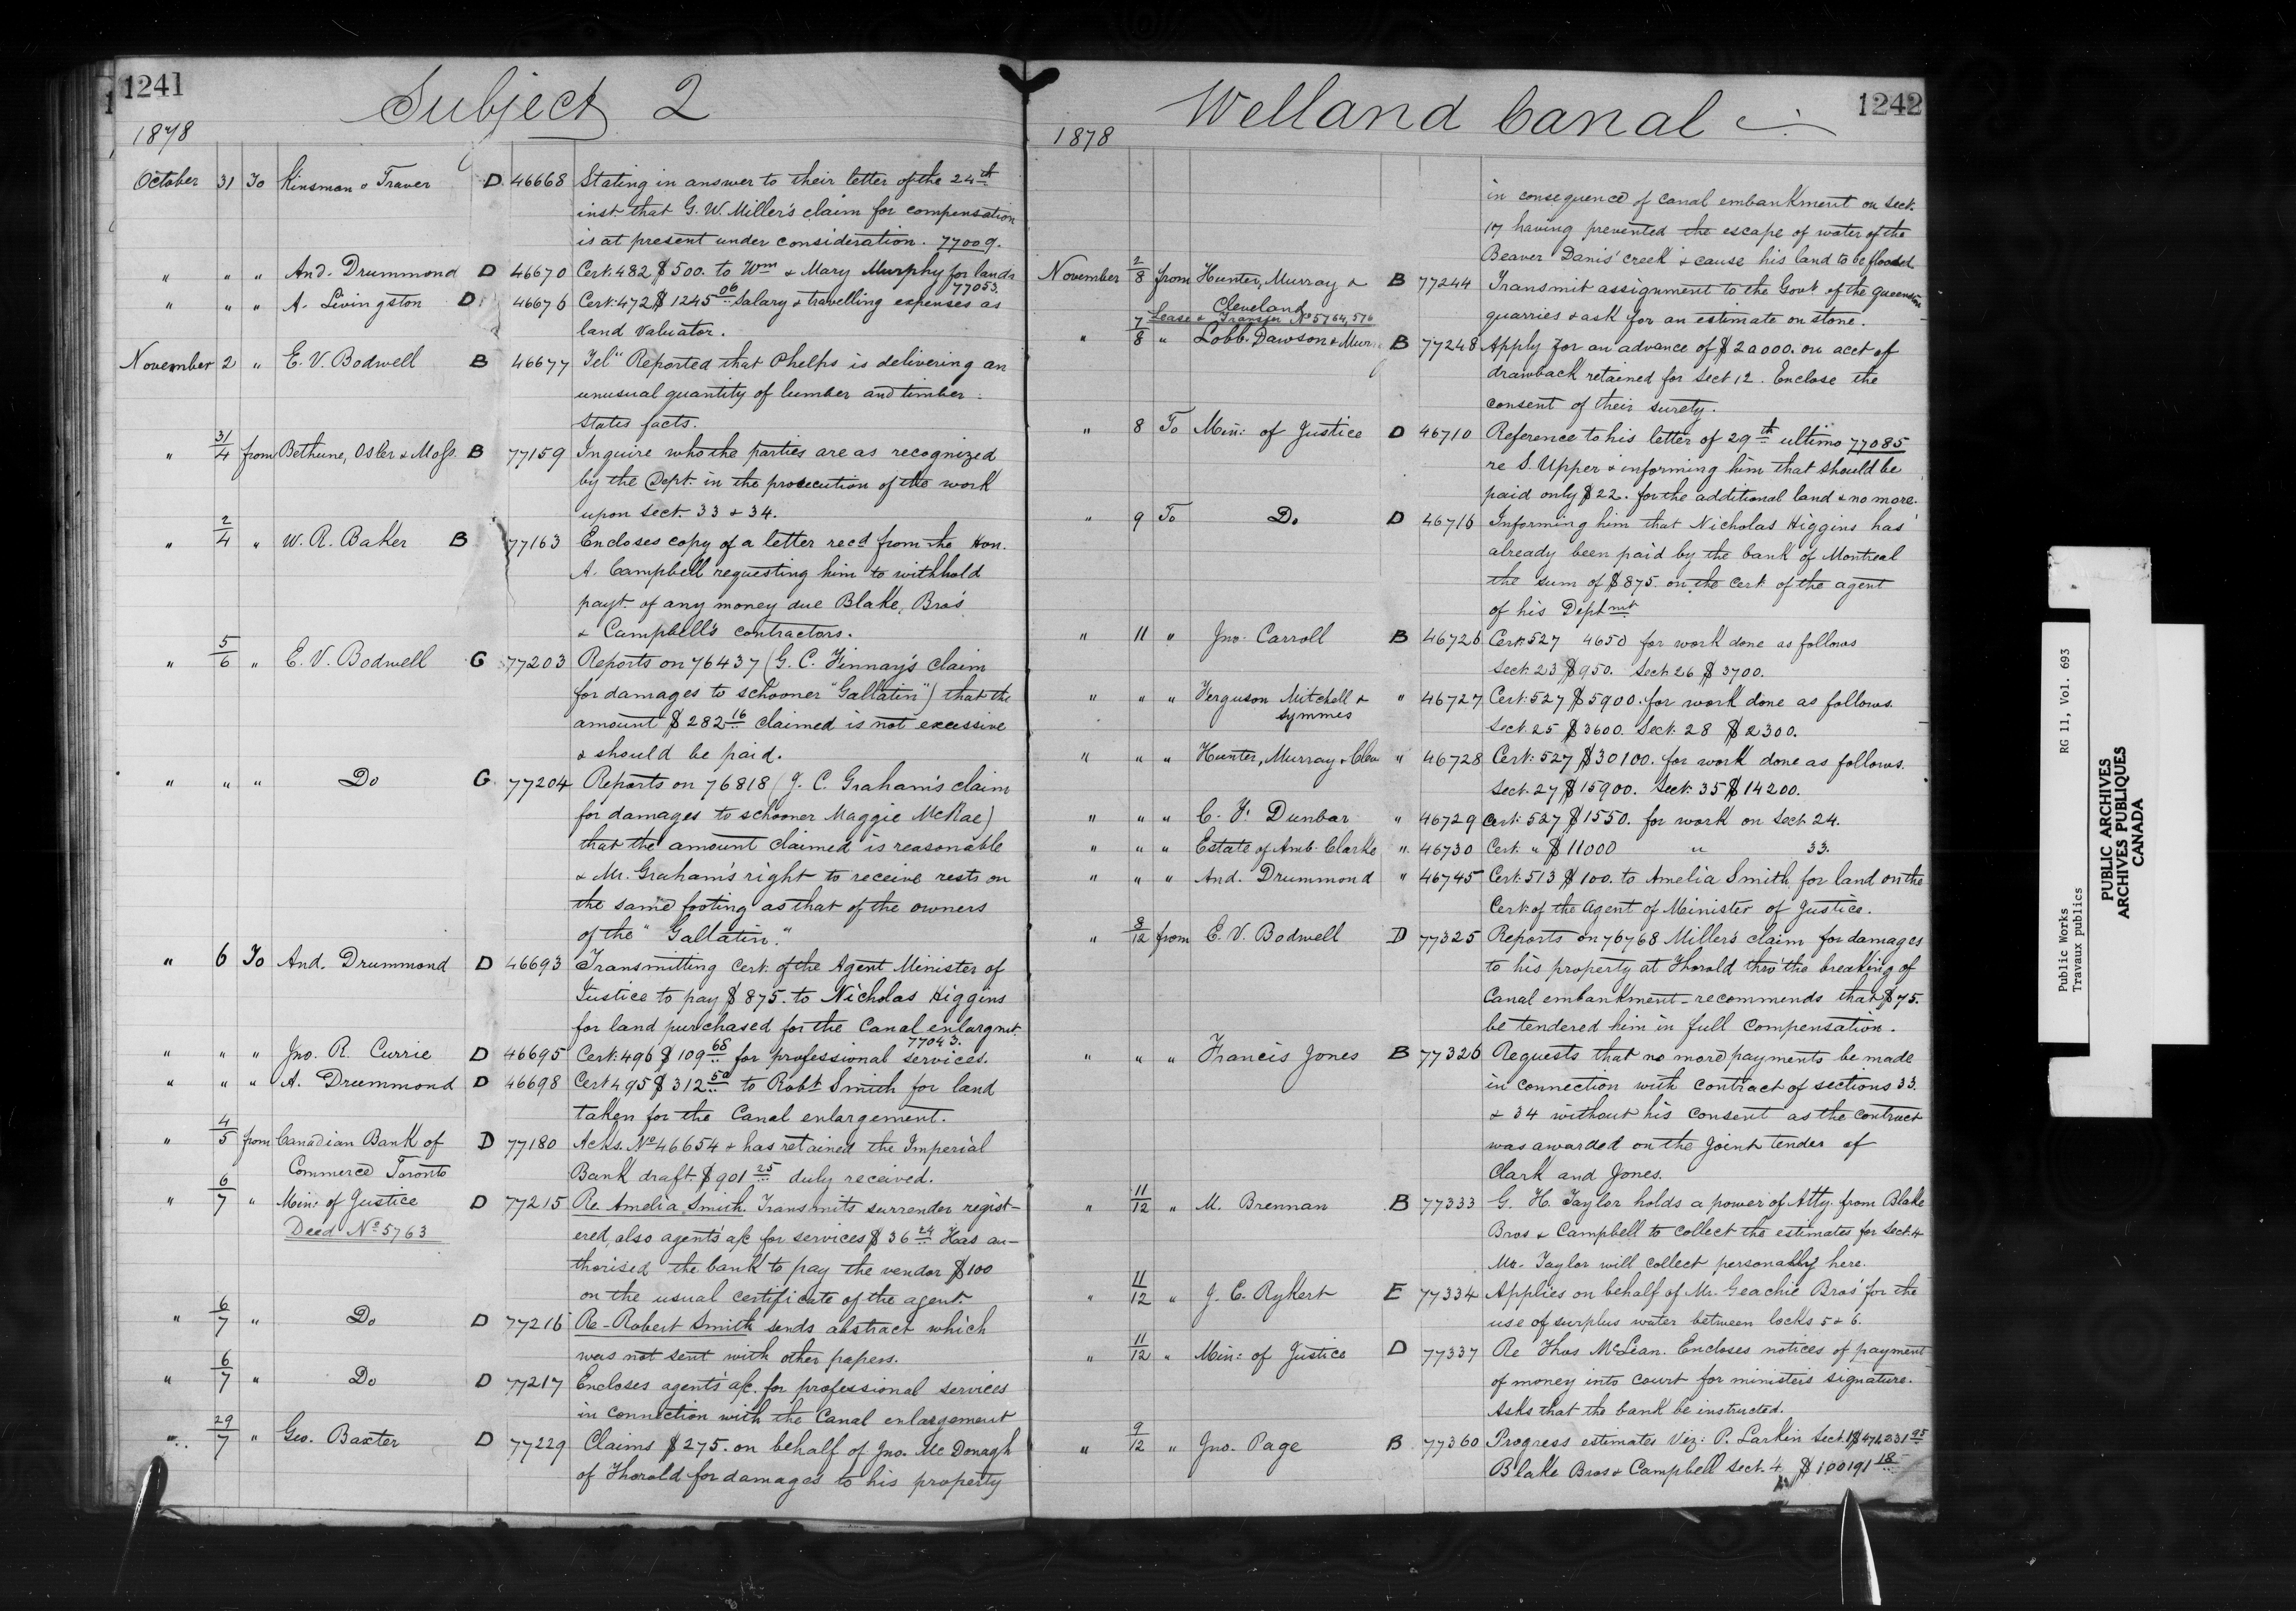 1241
Subject 2
1878
October 31 To Kinsman & Traver D 46668 Stating in answer to their letter of the 24th
inst. that G. W. Miller's claim for compensation
is at present under consideration. 77009.
" " " And. Drummond D 46670 Cert. 482 $500. to Wm & Mary Murphy for lands
77053.
" " " A. Livingston D 46676 Cert. 472 $1245 06 Salary & travelling expenses as
land valuator.
November 2 " E. V. Bodwell B 46677 Tel" Reported that Phelps is delivering an
unusual quantity of lumber and timber.
States facts.
" 31/4 from Bethune, Osler & Moss. B 77159 Inquire who the parties are as recognized
by the Dept. in the prosecution of the work
upon Sect. 33 & 34.
" 2/4 " W. R. Baker B 77163 Encloses copy of a letter recd from the Hon.
A. Campbell requesting him to withhold
payt. of any money due Blake, Bros
& Campbell's contractors.
" 5/6 " E. V. Bodwell G 77203 Reports on 76437 (G. C. Finnay's claim
for damages to schooner "Gallatin") that the
amount $282 16 claimed is not excessive
& should be paid.
" " " Do G 77204 Reports on 76818 (J. C. Graham's claim
for damages to schooner Maggie McRae)
that the amount claimed is reasonable
& Mr. Graham's right to receive rests on
the same footing as that of the owners
of the "Gallatin."
" 6 To And. Drummond D 46693 Transmitting Cert. of the Agent Minister of
Justice to pay $875. to Nicholas Higgins
for land purchased for the Canal enlargmt.
77043.
" " " Jno. R. Currie D 46695 Cert. 496 $109 68 for professional services.
" " " A. Drummond D 46698 Cert 495 $312 50 to Robt Smith for land
taken for the Canal enlargement.
" 4/5 from Canadian Bank of D 77180 Acks. No 46654 & has retained the Imperial
Commerce Toronto Bank draft $901 25 duly received.
" 6/7 " Min: of Justice D 77215 Re Amelia Smith. Transmits surrender regist-
Deed No 5763 ered, also agents' a/c for services $36 24 Has au-
thorised the bank to pay the vendor $100
on the usual certificate of the agent.
" 6/7 " Do D 77216 Re-Robert Smith sends abstract which
was not sent with other papers.
" 6/7 " Do D 77217 Encloses agents' a/c. for professional services
in connection with the Canal enlargement
" 29/7 " Geo. Baxter D 77229 Claims $275. on behalf of Jno. Mc Donagh
of Thorold for damages to his property
Welland Canal
1242
1878
in consequence of canal embankment on Sect.
17 having prevented the escape of water of the
Beaver Danis' creek & cause his land to be flooded.
November 2/8 from Hunter, Murray & B 77244 Transmit assignment to the Govt of the Queenston
Cleveland quarries & ask for an estimate on stone.
Lease & Transfer No 5764, 576
" 7/8 " Lobb. Dawson & Murr B 77248 Apply for an advance of $20000. on acct of
drawback retained for Sect 12. Enclose the
consent of their surety.
" 8 To Min: of Justice D 46710 Reference to his letter of 29th ultimo 77085
re S. Upper & informing him that should be
paid only $22. for the additional land & no more.
" 9 To Do D 46716 Informing him that Nicholas Higgins has
already been paid by the bank of Montreal
the sum of $875. on the Cert. of the agent
of his Deptmt
" 11 " Jno. Carroll B 46726 Cert: 527 4650 for work done as follows
Sect. 23 $950. Sect. 26 $3700.
" " " Ferguson Mitchell & " 46727 Cert: 527 $5900. for work done as follows.
Symmes Sect. 25 $3600. Sect. 28 $2300.
" " " Hunter, Murray & Cleve " 46728 Cert: 527 $30100. for work done as follows.
Sect. 27 $15900. Sect. 35 $14200.
" " " C. F. Dunbar " 46729 Cert: 527 $1550. for work on Sect. 24.
" " " Estate of Amb. Clarke " 46730 Cert. " $11000 " 33.
" " " And. Drummond " 46745 Cert. 513 $100. to Amelia Smith for land on the
Cert: of the Agent of Minister of Justice.
" 8/12 from E. V. Bodwell D 77325 Reports on 76768 Miller's claim for damages
to his property at Thorold thro' the breaking of
Canal embankment - recommends that $75.
be tendered him in full compensation.
" " " Francis Jones B 77326 Requests that no more payments be made
in connection with contract of sections 33.
& 34 without his consent as the contract
was awarded on the joint tender of
Clark and Jones.
" 11/12 " M. Brennan B 77333 G. H. Taylor holds a power of Atty. from Blake
Bros & Campbell to collect the estimates for Sect. 4
Mr. Taylor will collect personally here.
" 11/12 " J. C. Rykert E 77334 Applies on behalf of Mr. Geachie Bros' for the
use of surplus water between locks 5 & 6.
" 11/12 " Min: of Justice D 77337 Re Thos McLean. Encloses notices of payment
of money into court for minister's signature.
Asks that the bank be instructed.
" 9/12 " Jno. Page B 77360 Progress estimates Viz: P. Larkin Sect.
Blake Bros & Campbell Sect. 4 $100191 18
Public Works RG 11, Vol. 693
Travaux publics
PUBLIC ARCHIVES
ARCHIVES PUBLIQUES
CANADA